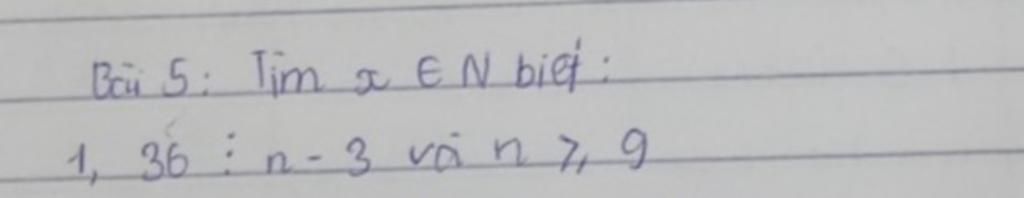 Bài 5: Tìm x ∈ N biết:
1, 36 ⋮ n - 3 và n ⩾ 9